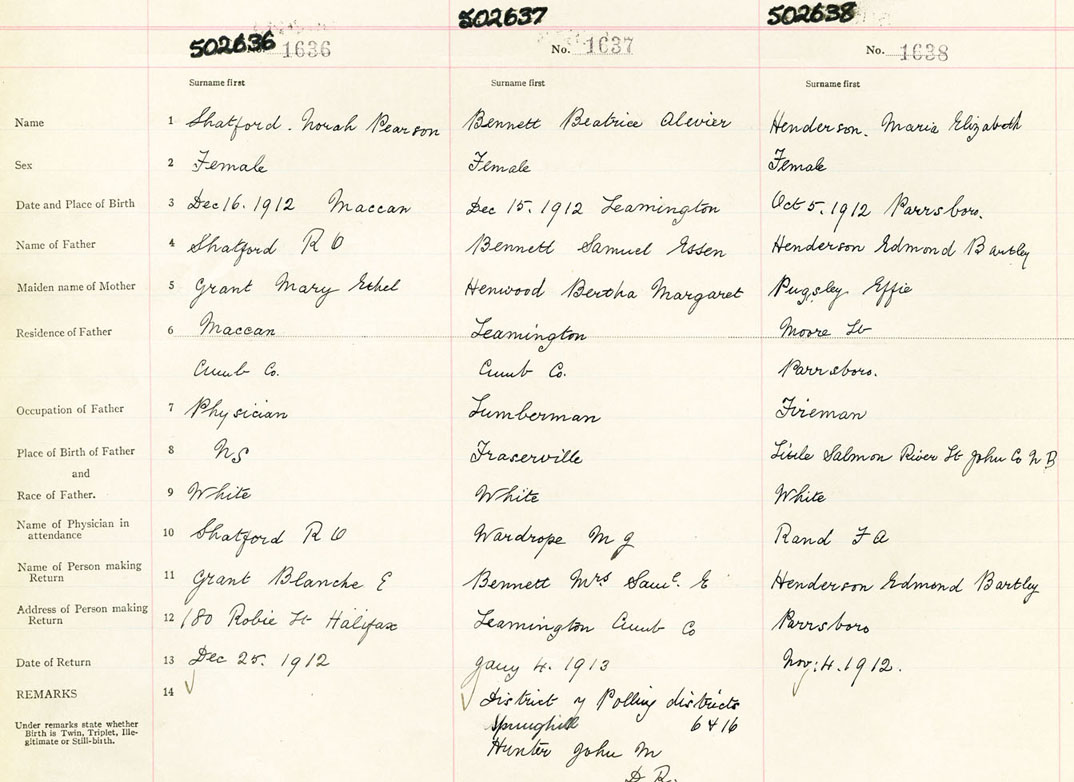 502636 502637 502638
No. 1636 No. 1637 No. 1638
Surname first Surname first Surname first
Name 1 Shatford. Norah Pearson Bennett Beatrice Alevier Henderson. Maria Elizabeth
Sex 2 Female Female Female
Date and Place of Birth 3 Dec 16. 1912 Maccan Dec 15. 1912 Leamington Oct 5. 1912 Parrsboro.
Name of Father 4 Shatford R O Bennett Samuel Essen Henderson Edmond Bartley
Maiden name of Mother 5 Grant Mary Ethel Henwood Bertha Margaret Pugsley Effie
Residence of Father 6 Maccan Leamington Moore St
Cumb Co. Cumb Co. Parrsboro.
Occupation of Father 7 Physician Lumberman Fireman
Place of Birth of Father 8 N S Fraserville Little Salmon River St John Co N B
and
Race of Father. 9 White White White
Name of Physician in
attendance 10 Shatford R O Wardrope M G Rand F A
Name of Person making
Return 11 Grant Blanche E Bennett Mrs Saml. E Henderson Edmond Bartley
Address of Person making
Return 12 180 Robie St Halifax Leamington Cumb Co Parrsboro
Date of Return 13 Dec 25. 1912 Jany 4. 1913 Nov. 4. 1912.
REMARKS 14 District of Polling districts
Under remarks state whether
Birth is Twin, Triplet, Ille-
gitimate or Still-birth.
Springhill 6 & 16
Hunter John M
D. R.